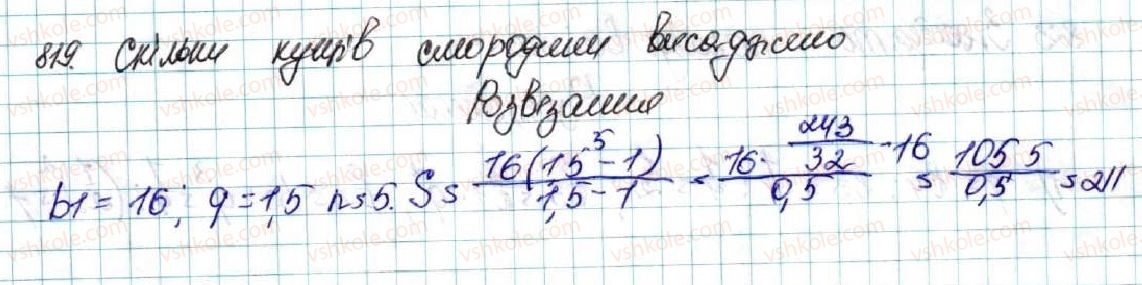 819. Скільки кущів смородини висаджено
Розвязання
b1 = 16; q = 1,5 n = 5. S = 16(1,5^5 - 1) / 1,5 - 1 = 16 · 243/32 - 16 / 0,5 = 105 5 / 0,5 = 211